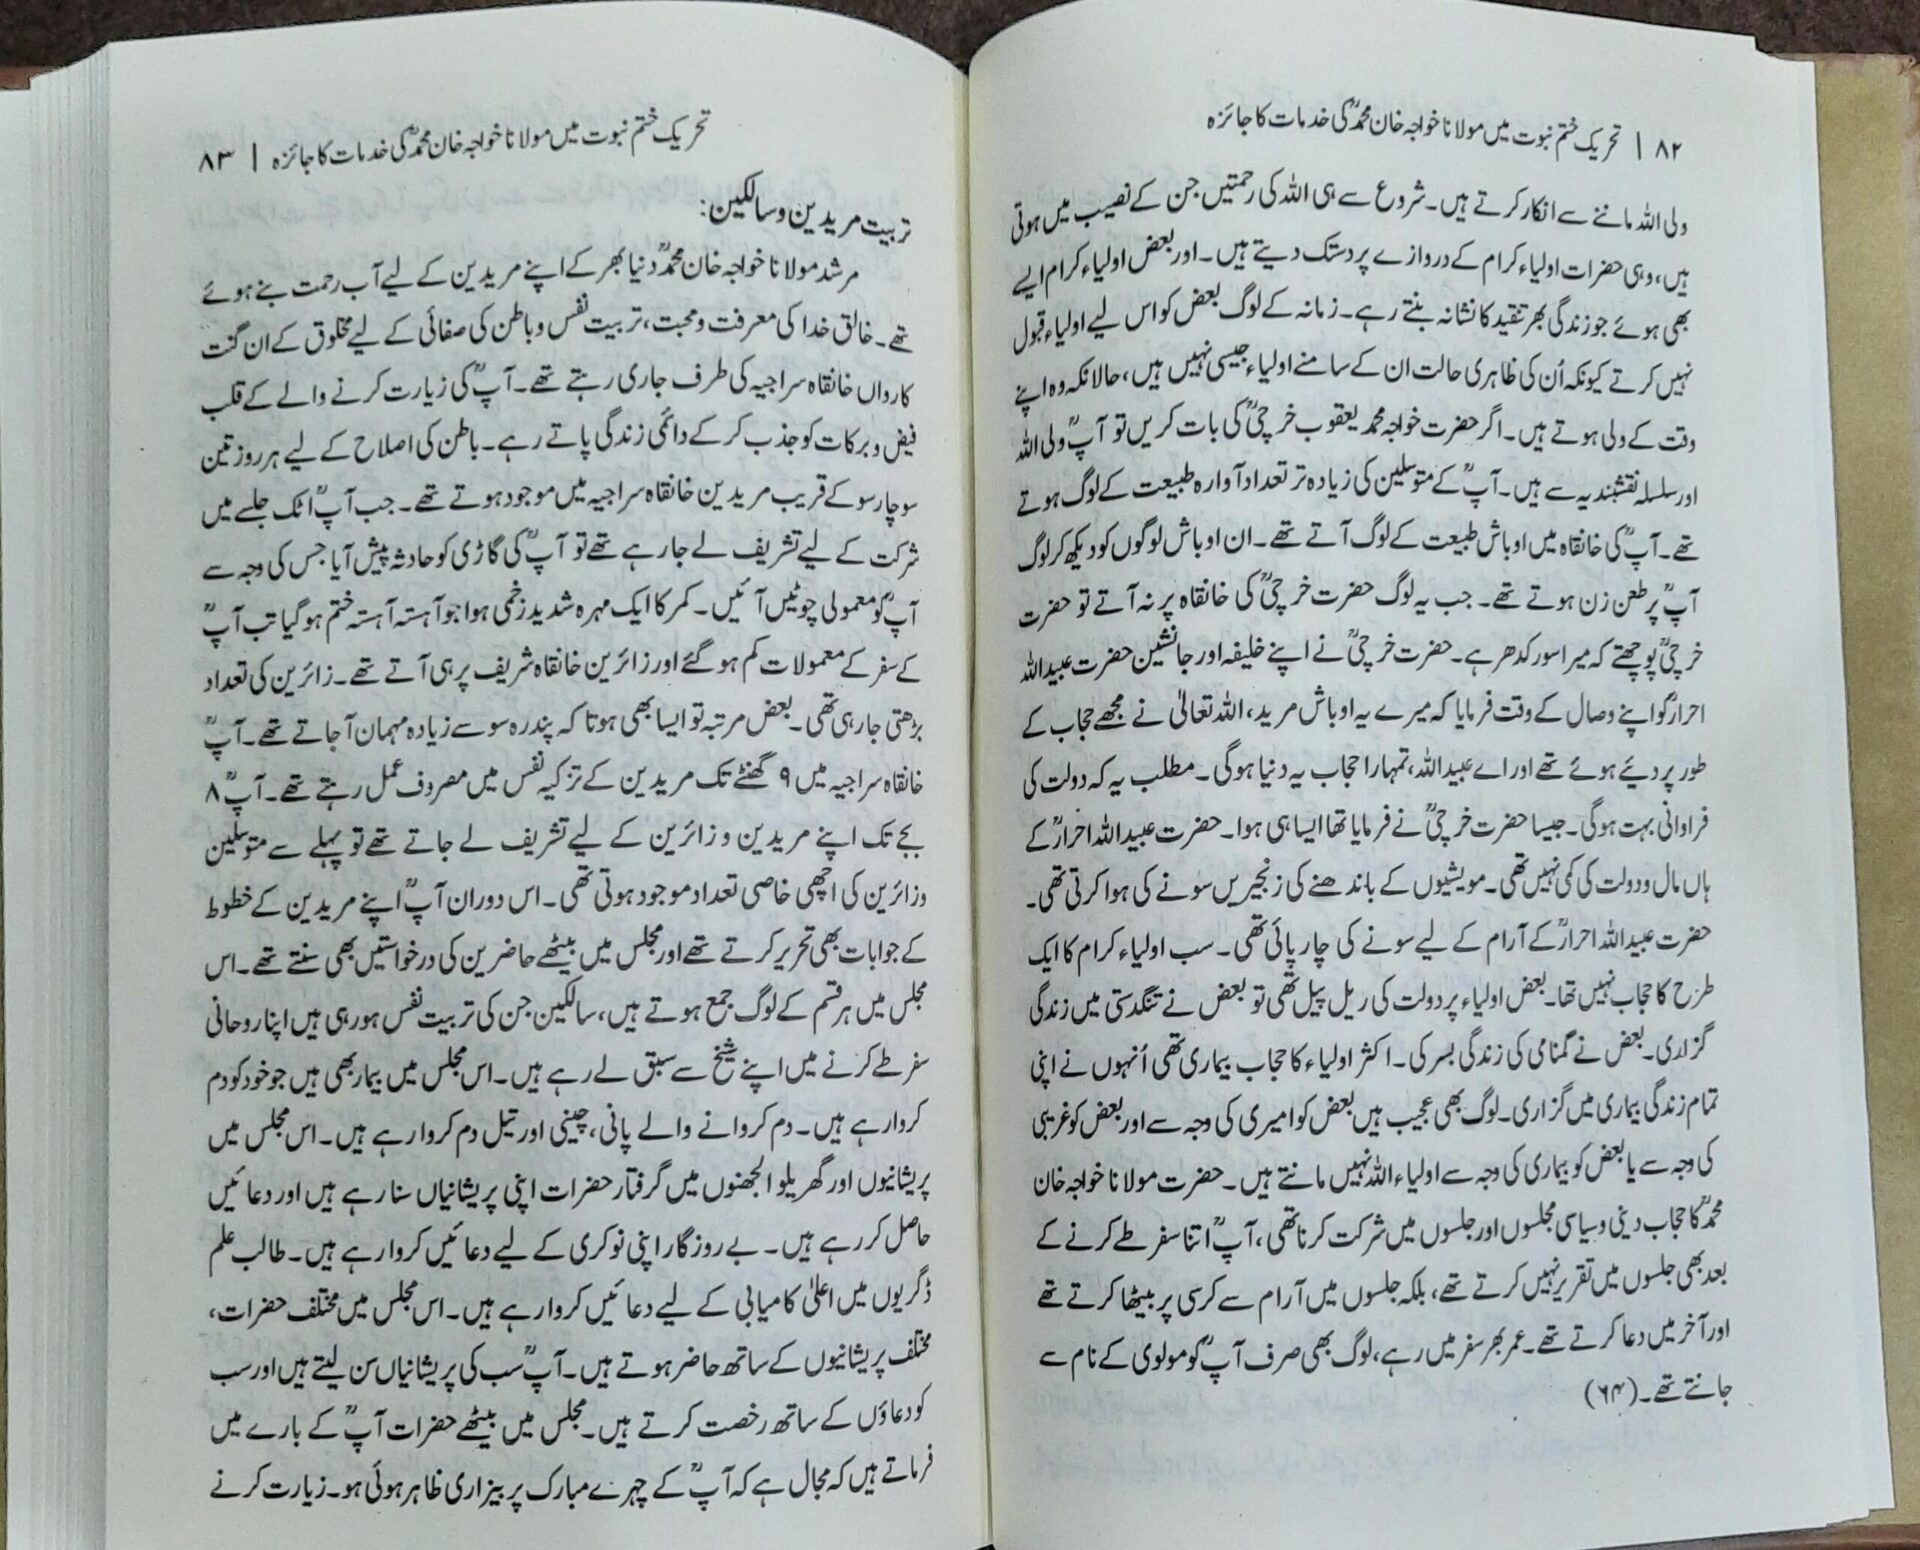 ۸۲ | تحریک ختم نبوت میں مولانا خواجہ خان محمدؒ کی خدمات کا جائزہ
ولی اللہ ماننے سے انکار کرتے ہیں۔ شروع سے ہی اللہ کی رحمتیں جن کے نصیب میں ہوتی
ہیں، وہی حضرات اولیاء کرام کے دروازے پر دستک دیتے ہیں۔ اور بعض اولیاء کرام ایسے
بھی ہوئے جو زندگی بھر تنقید کا نشانہ بنتے رہے۔ زمانہ کے لوگ بعض کو اس لیے اولیاء قبول
نہیں کرتے کیونکہ اُن کی ظاہری حالت ان کے سامنے اولیاء جیسی نہیں ہیں، حالانکہ وہ اپنے
وقت کے ولی ہوتے ہیں۔ اگر حضرت خواجہ محمد یعقوب خرچیؒ کی بات کریں تو آپؒ ولی اللہ
اور سلسلہ نقشبندیہ سے ہیں۔ آپؒ کے متوسلین کی زیادہ تر تعداد آوارہ طبیعت کے لوگ ہوتے
تھے۔ آپؒ کی خانقاہ میں اوباش طبیعت کے لوگ آتے تھے۔ ان اوباش لوگوں کو دیکھ کر لوگ
آپؒ پر طعن زن ہوتے تھے۔ جب یہ لوگ حضرت خرچیؒ کی خانقاہ پر نہ آتے تو حضرت
خرچیؒ پوچھتے کہ میرا سور کدھر ہے۔ حضرت خرچیؒ نے اپنے خلیفہ اور جانشین حضرت عبید اللہ
احرارؒ کو اپنے وصال کے وقت فرمایا کہ میرے یہ اوباش مرید، اللہ تعالیٰ نے مجھے حجاب کے
طور پر دیئے ہوئے تھے اور اے عبید اللہ، تمہارا حجاب یہ دنیا ہوگی۔ مطلب یہ کہ دولت کی
فراوانی بہت ہوگی۔ جیسا حضرت خرچیؒ نے فرمایا تھا ایسا ہی ہوا۔ حضرت عبید اللہ احرارؒ کے
ہاں مال و دولت کی کمی نہیں تھی۔ مویشیوں کے باندھنے کی زنجیریں سونے کی ہوا کرتی تھی۔
حضرت عبید اللہ احرارؒ کے آرام کے لیے سونے کی چارپائی تھی۔ سب اولیاء کرام کا ایک
طرح کا حجاب نہیں تھا۔ بعض اولیاء پر دولت کی ریل پیل تھی تو بعض نے تنگدستی میں زندگی
گزاری۔ بعض نے گمنامی کی زندگی بسر کی۔ اکثر اولیاء کا حجاب بیماری تھی اُنہوں نے اپنی
تمام زندگی بیماری میں گزاری۔ لوگ بھی عجیب ہیں بعض کو امیری کی وجہ سے اور بعض کو غریبی
کی وجہ سے یا بعض کو بیماری کی وجہ سے اولیاء اللہ نہیں مانتے ہیں۔ حضرت مولانا خواجہ خان
محمدؒ کا حجاب دینی و سیاسی مجلسوں اور جلسوں میں شرکت کرنا تھی، آپؒ اتنا سفر طے کرنے کے
بعد بھی جلسوں میں تقریر نہیں کرتے تھے، بلکہ جلسوں میں آرام سے کرسی پر بیٹھا کرتے تھے
اور آخر میں دعا کرتے تھے۔ عمر بھر سفر میں رہے، لوگ بھی صرف آپؒ کو مولوی کے نام سے
جانتے تھے۔ (۶۴)
تحریک ختم نبوت میں مولانا خواجہ خان محمدؒ کی خدمات کا جائزہ | ۸۳
تربیت مریدین و سالکین:
مرشد مولانا خواجہ خان محمدؒ دنیا بھر کے اپنے مریدین کے لیے آب رحمت بنے ہوئے
تھے۔ خالق خدا کی معرفت و محبت، تربیت نفس و باطن کی صفائی کے لیے مخلوق کے ان گنت
کارواں خانقاہ سراجیہ کی طرف جاری رہتے تھے۔ آپؒ کی زیارت کرنے والے کے قلب
فیض و برکات کو جذب کر کے دائمی زندگی پاتے رہے۔ باطن کی اصلاح کے لیے ہر روز تین
سو چار سو کے قریب مریدین خانقاہ سراجیہ میں موجود ہوتے تھے۔ جب آپؒ اٹک جلسے میں
شرکت کے لیے تشریف لے جا رہے تھے تو آپؒ کی گاڑی کو حادثہ پیش آیا جس کی وجہ سے
آپؒ کو معمولی چوٹیں آئیں۔ کمر کا ایک مہرہ شدید زخمی ہوا جو آہستہ آہستہ ختم ہو گیا تب آپؒ
کے سفر کے معمولات کم ہو گئے اور زائرین خانقاہ شریف پر ہی آتے تھے۔ زائرین کی تعداد
بڑھتی جا رہی تھی۔ بعض مرتبہ تو ایسا بھی ہوتا کہ پندرہ سو سے زیادہ مہمان آ جاتے تھے۔ آپؒ
خانقاہ سراجیہ میں ۹ گھنٹے تک مریدین کے تزکیہ نفس میں مصروف عمل رہتے تھے۔ آپؒ ۸
بجے تک اپنے مریدین و زائرین کے لیے تشریف لے جاتے تھے تو پہلے سے متوسلین
وزائرین کی اچھی خاصی تعداد موجود ہوتی تھی۔ اس دوران آپؒ اپنے مریدین کے خطوط
کے جوابات بھی تحریر کرتے تھے اور مجلس میں بیٹھے حاضرین کی درخواستیں بھی سنتے تھے۔ اس
مجلس میں ہر قسم کے لوگ جمع ہوتے ہیں، سالکین جن کی تربیت نفس ہو رہی ہیں اپنا روحانی
سفر طے کرنے میں اپنے شیخ سے سبق لے رہے ہیں۔ اس مجلس میں بیمار بھی ہیں جو خود کو دم
کروا رہے ہیں۔ دم کروانے والے پانی، چینی اور تیل دم کروا رہے ہیں۔ اس مجلس میں
پریشانیوں اور گھریلو الجھنوں میں گرفتار حضرات اپنی پریشانیاں سنا رہے ہیں اور دعائیں
حاصل کر رہے ہیں۔ بے روزگار اپنی نوکری کے لیے دعائیں کروا رہے ہیں۔ طالب علم
ڈگریوں میں اعلیٰ کامیابی کے لیے دعائیں کروا رہے ہیں۔ اس مجلس میں مختلف حضرات،
مختلف پریشانیوں کے ساتھ حاضر ہوتے ہیں۔ آپؒ سب کی پریشانیاں سن لیتے ہیں اور سب
کو دعاؤں کے ساتھ رخصت کرتے ہیں۔ مجلس میں بیٹھے حضرات آپؒ کے بارے میں
فرماتے ہیں کہ مجال ہے کہ آپؒ کے چہرے مبارک پر بیزاری ظاہر ہوئی ہو۔ زیارت کرنے